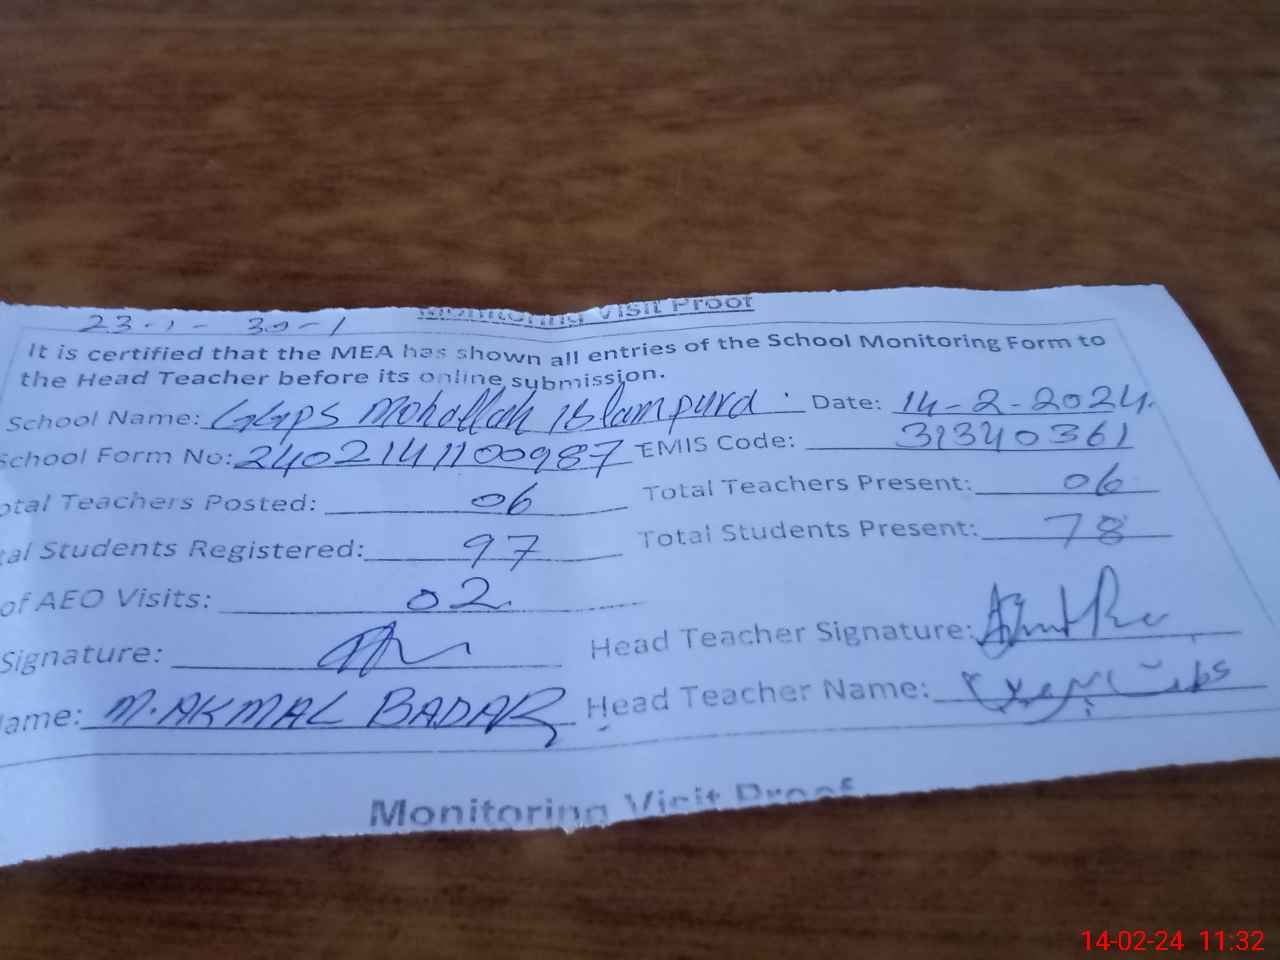 Monitoring Visit Proof
23-1- 30-1
It is certified that the MEA has shown all entries of the School Monitoring Form to
the Head Teacher before its online submission.
School Name: GGPS Mohallah Islampura Date: 14-2-2024.
School Form No: 2402141100987 EMIS Code: 31340361
otal Teachers Posted: 06 Total Teachers Present: 06
tal Students Registered: 97 Total Students Present: 78
of AEO Visits: 02
Signature: Head Teacher Signature:
ame: M. AKMAL BADAR Head Teacher Name:
Monitoring Visit Proof
14-02-24 11:32